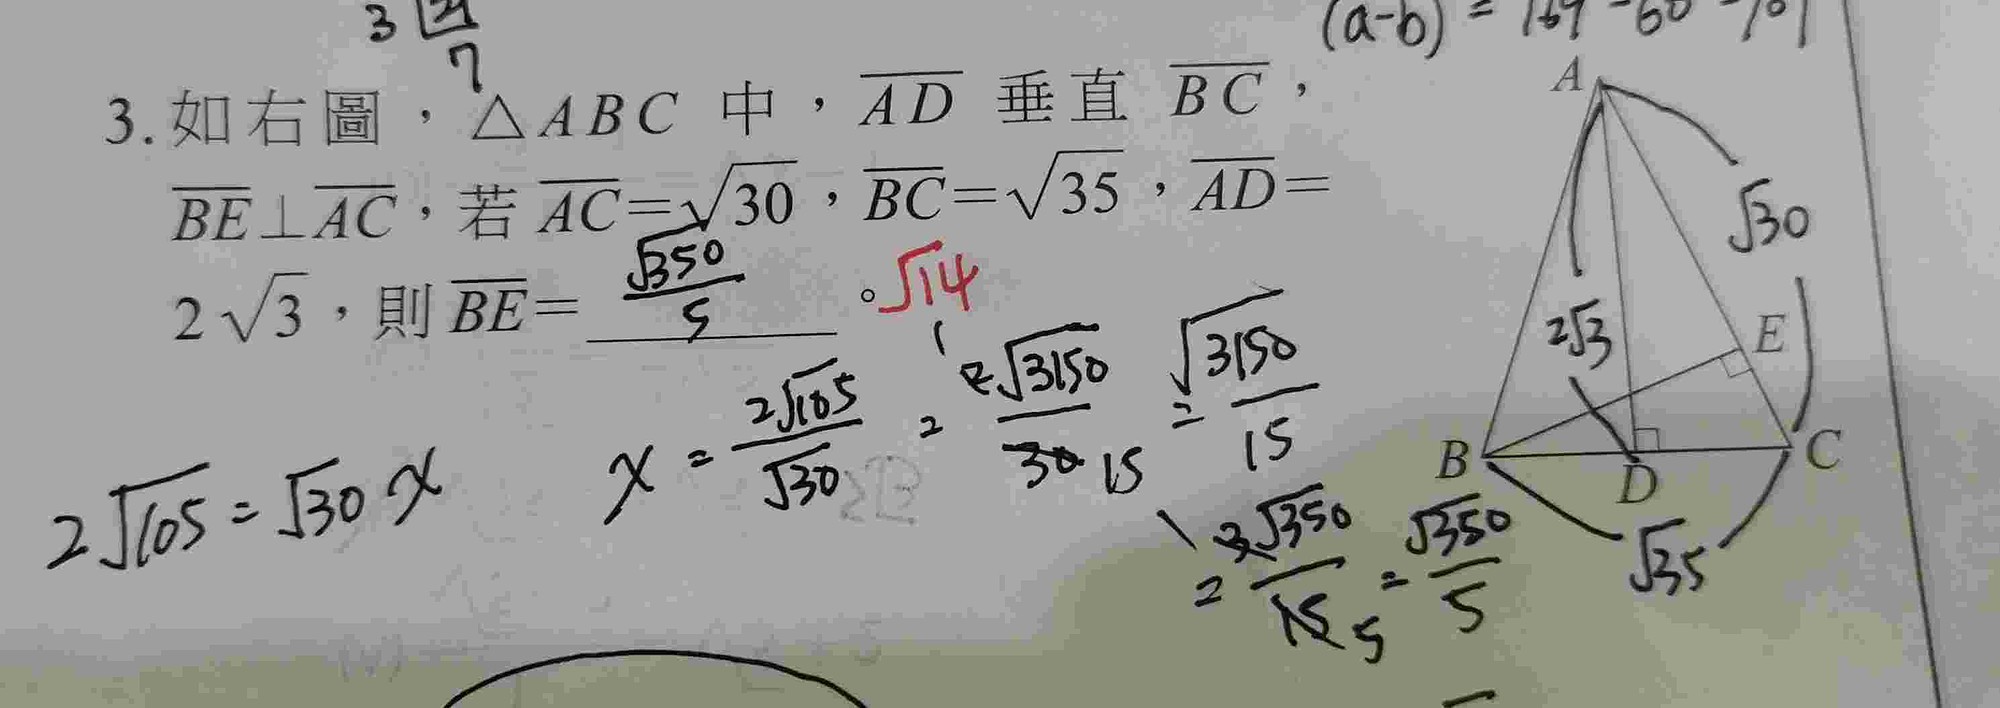 3 21
7
(a-b) = 169-60
3. 如右圖，△ABC 中，AD 垂直 BC，
BE⊥AC，若 AC=√30，BC=√35，AD=
2√3，則 BE= √350/5 。√14
2√105=√30 x
x = 2√105/√30 = 2√3150/30 15 = √3150/15
= 3√350/15 5 = √350/5
A
√30
2√3
E
B
D
C
√35